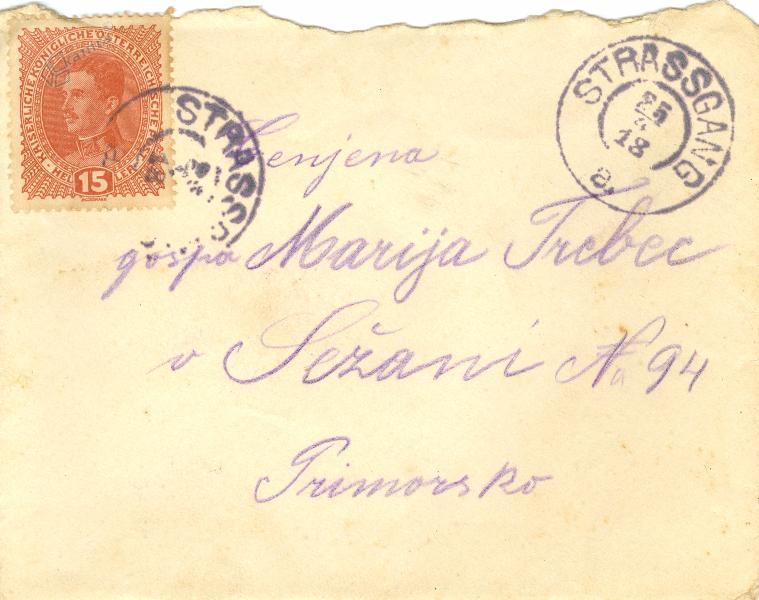 KAISERLICHE KÖNIGLICHE ÖSTERREICHISCHE
HELLER
15
STRASSG
STRASSGANG
25
18
a
Cenjena
gospa Marija Trebec
v Sežani Na 94
Primorsko